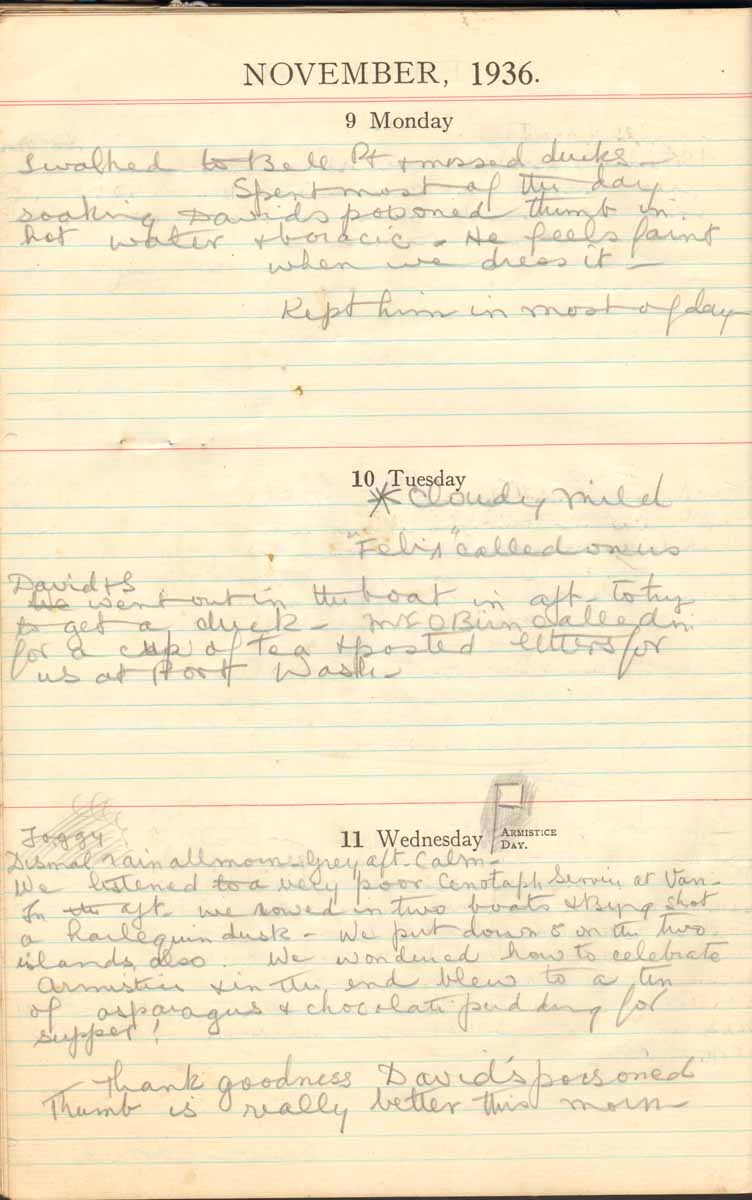 NOVEMBER, 1936.
9 Monday
I walked to Bell Pt & missed ducks –
Spent most of the day
soaking Davids poisoned thumb in
hot water & boracic – He feels faint
when we dress it –
Kept him in most of day
10 Tuesday
* Cloudy mild
"Felix" called on us
David & I
we went out in the boat in aft – to try
to get a duck – Mr called in
for a cup of tea & posted letters for
us at Port Wash –
11 Wednesday
ARMISTICE
DAY.
Foggy
Dismal rain all morn – Grey aft. Calm –
We listened to a very poor Cenotaph Service at Van –
In the aft we rowed in two boats & Byng shot
a harlequin duck – We put down 5 on the two
islands, also. We wondered how to celebrate
Armistice & in the end blew to a tin
of asparagus & chocolate pudding for
supper!
Thank goodness David's poisoned
Thumb is really better this morn